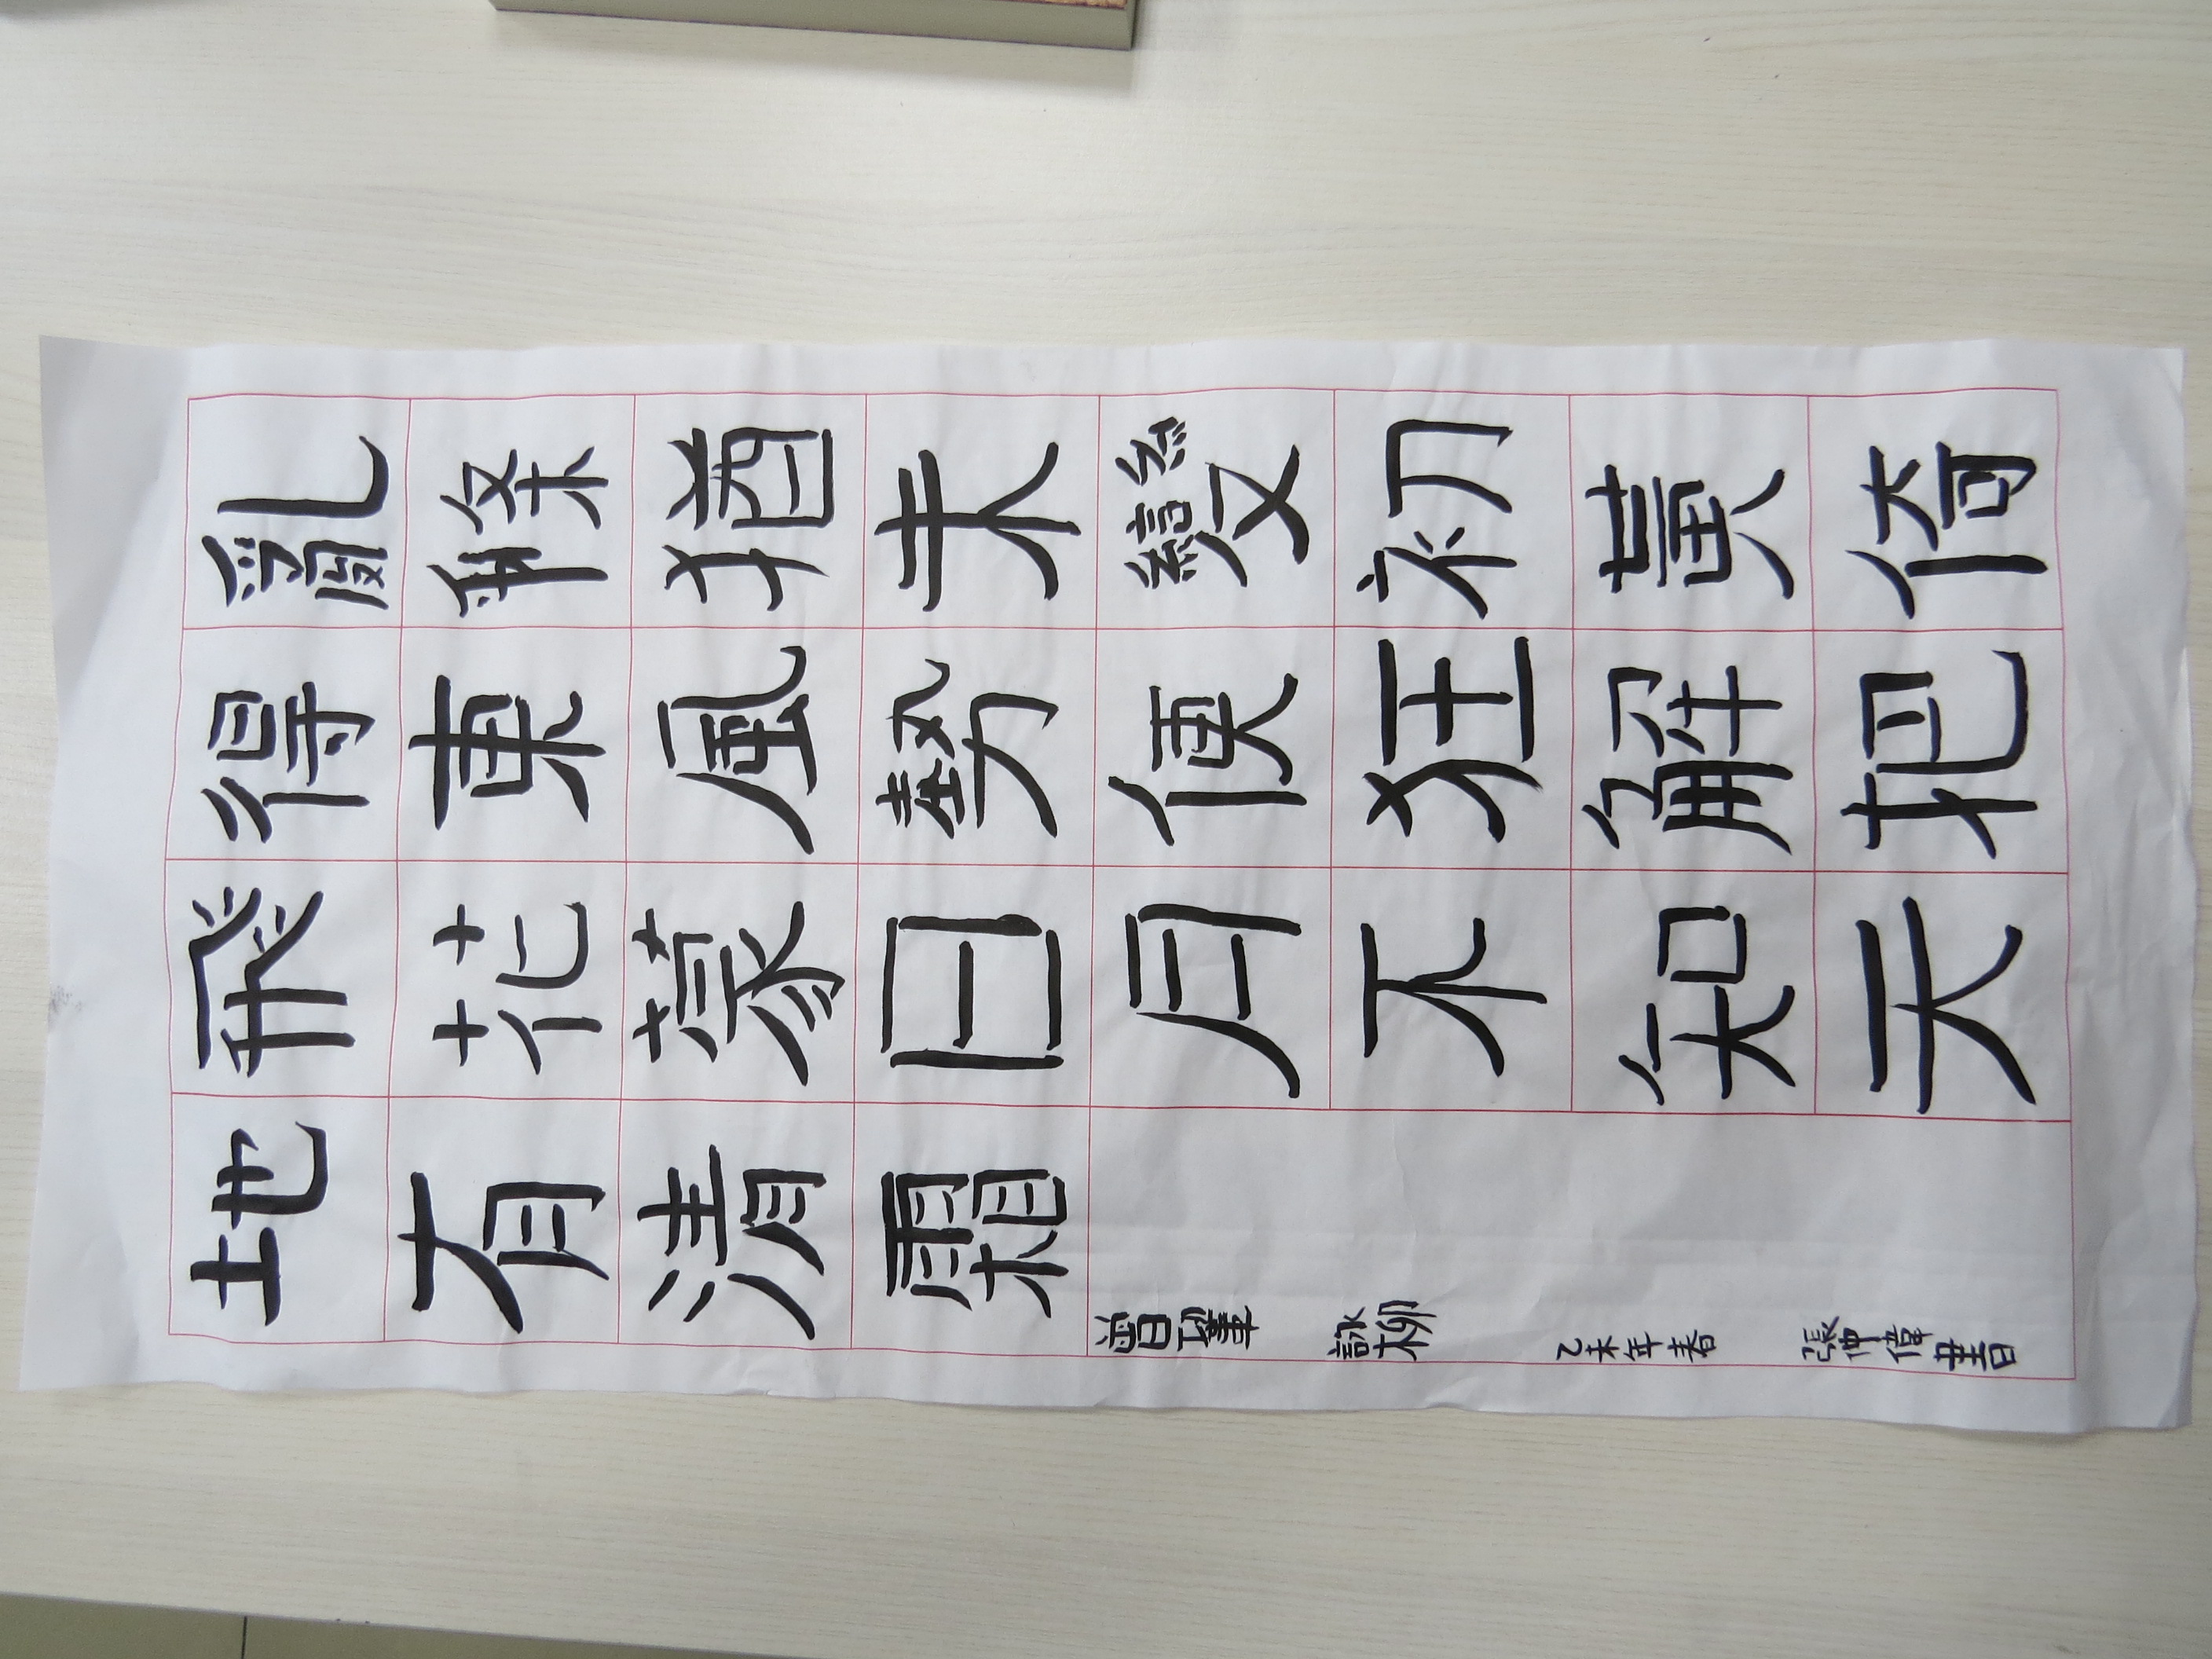 亂條猶未變初黃倚
得東風勢便狂解把
飛花蒙日月不知天
地有清霜
曾鞏 詠柳 乙未年春 張仲偉書